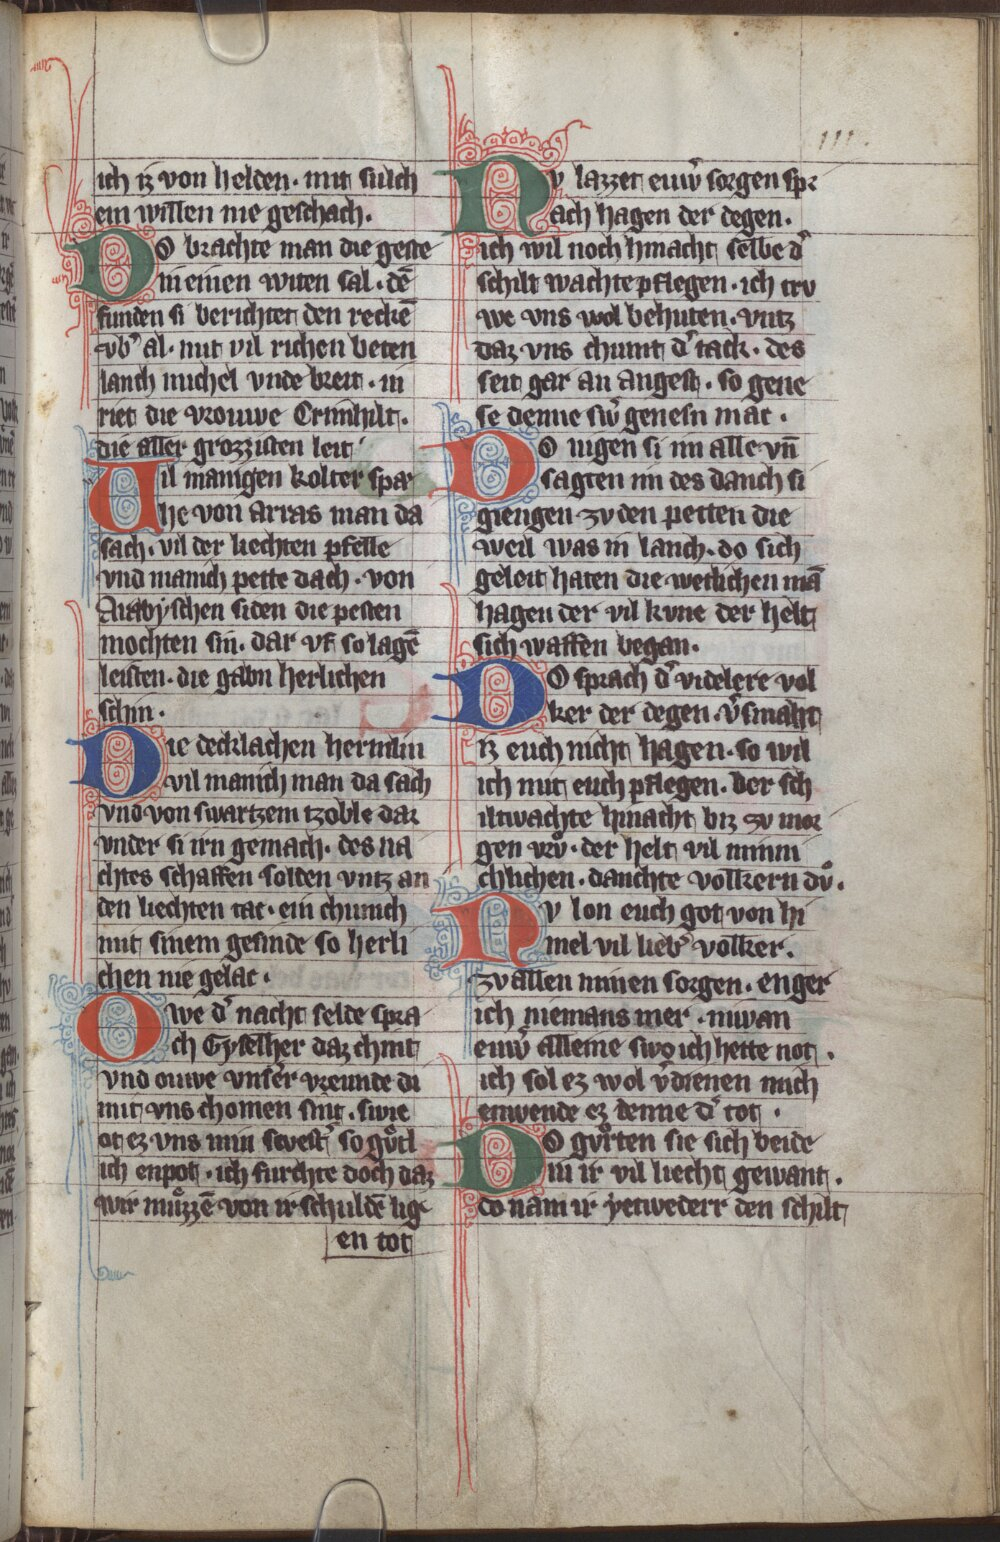 ich iz von helden · mit sulch
em willen nie geschach ·
DO brachte man die geste
in einen witen sal · dē
funden si berichtet den reckē
vb͛ al · mit vil richen beten
lanch michel vnde breit · in
riet die vrouwe Crimhilt ·
die aller grozzisten leit
Uil manigen kolter spæ
he von arras man da
sach · vil der liechten pfelle
vnd manich pette dach · von
Arabyschen siden die pesten
mochten sin · dar vf so lagē
leisten · die gabn herlichen
schin ·
Die decklachen hermlin
vil manich man da sach
vnd von swartzem tzoble dar
vnder si irn gemach · des na
chtes schaffen solden vntz an
den liechten tac · ein chunich
mit sinem gesinde so herli
chen nie gelac ·
Owe d͛ nacht selde spra
ch Gyselher daz chint
vnd ouwe vnser vreunde di
mit vns chomen sint · swie
ot ez vns min swest͛ so guͦtl
ich enpot · ich furchte doch daz
wir muͦzzē von ir schuldē lig
en tot
III.
NV lazzet euw͛ sorgen spr
ach hagen der degen ·
ich wil noch hinacht selbe d͛
schilt wachte pflegen · ich trv
we vns wol behuten · vntz
daz vns chumt d͛ tack · des
seit gar an angest · so gene
se denne sw͛ genesn mac ·
DO nigen si im alle vn̄
sagten im des danch si
giengen zv den petten die
weil was in lanch · do sich
geleit haten die wetlichen mā
hagen der vil kvne der helt
sich waffen began ·
DO sprach d͛ videlere vol
ker der degen · v͛smaht
iz euch nicht hagen · so wil
ich mit euch pflegen · der sch
iltwachte hinacht biz zv mor
gen vrͦv · der helt vil minni
chlichen · danchte volkern dvͦ ·
NV lon euch got von hi
mel vil lieb͛ volker ·
zv allen minen sorgen · enger
ich niemans mer · niwan
euw͛ alleine swo ich hette not ·
ich sol ez wol v͛dienen mich
enwende ez denne d͛ tot ·
DO gvͦrten sie sich beide
in ir vil liecht gewant ·
do nam ir yetwederr den schilt